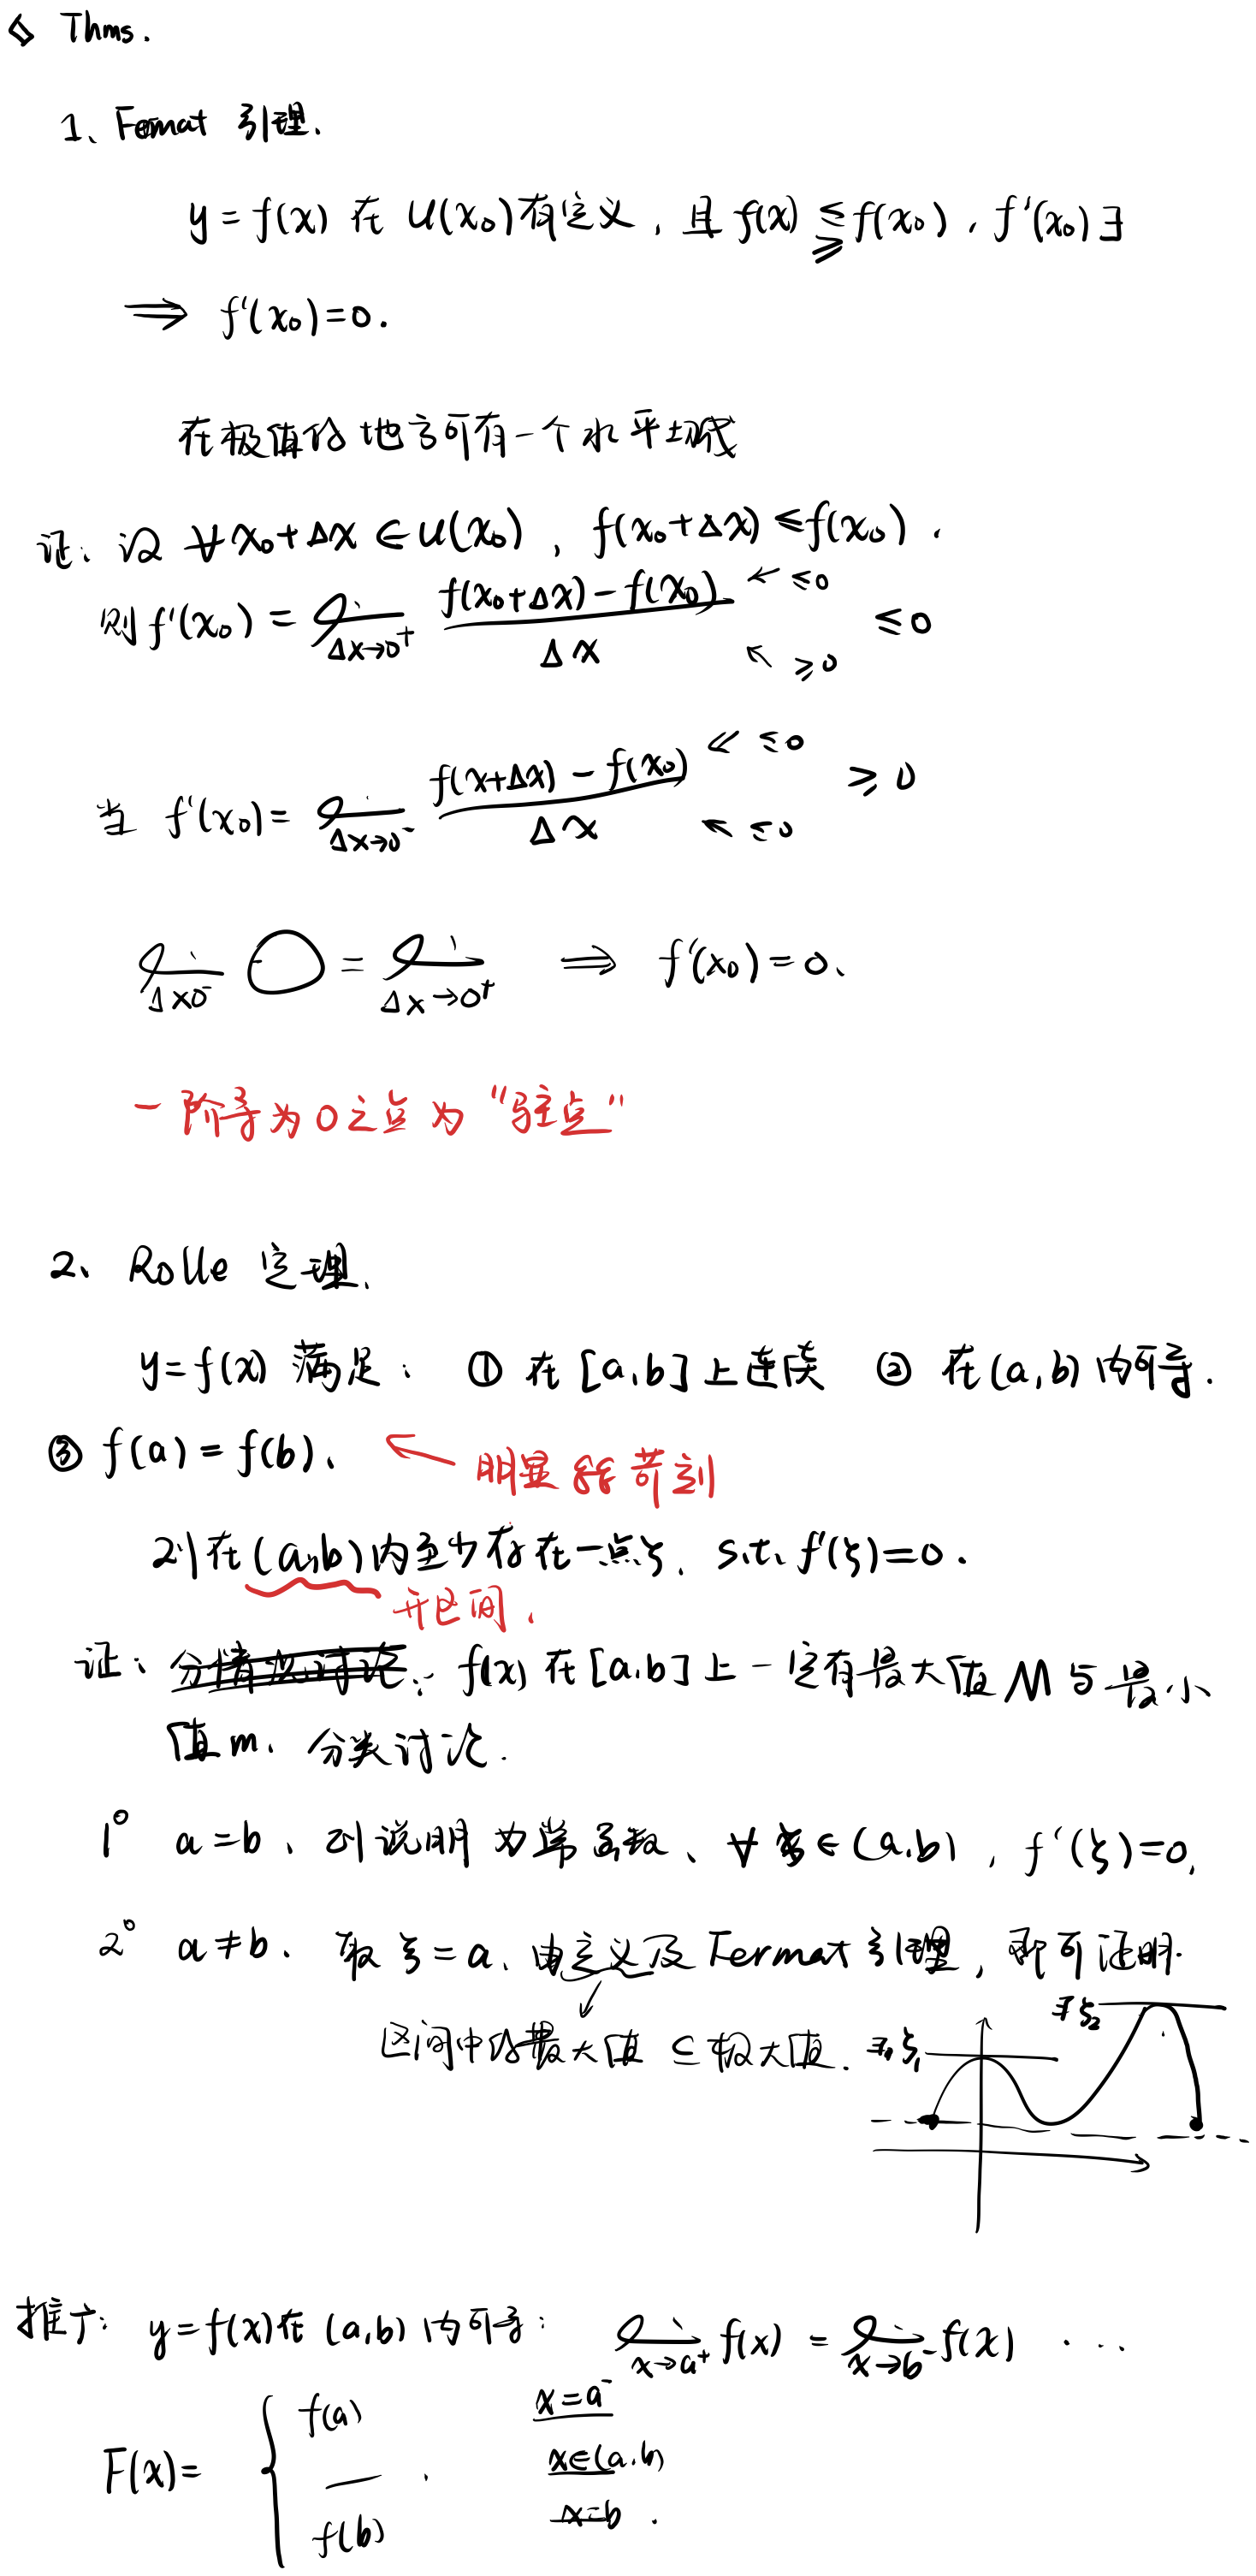 Thms.
1、Femat 引理.
y = f(x) 在 U(x₀)有定义, 且 f(x) ≤ f(x₀), f'(x₀)∃
≥
⟹ f'(x₀)=0.
在极值的地方可有一个水平切线
证: 设 ∀x₀+Δx ∈ U(x₀), f(x₀+Δx) ≤ f(x₀).
则 f'(x₀) = lim Δx→0⁺ (f(x₀+Δx) − f(x₀))/Δx ≤ 0
← ≤0
↖ ≥0
当 f'(x₀) = lim Δx→0⁻ (f(x+Δx) − f(x₀))/Δx ≥ 0
≤0
← ≤0
lim Δx0⁻ ○ = lim Δx→0⁺ ⟹ f'(x₀)=0、
一阶导为0之点为“驻点”
2、Rolle 定理.
y=f(x) 满足: ① 在[a,b]上连续 ② 在(a,b)内可导.
③ f(a) = f(b)、 ← 明显 苛刻
则在(a,b)内至少存在一点ξ, s.t. f'(ξ)=0.
开区间.
证: 分情况讨论 ∵ f(x) 在[a,b]上一定有最大值M与最小
值m. 分类讨论.
1° a=b、则说明为常函数、∀ξ∈(a,b), f'(ξ)=0,
2° a≠b. 取 ξ=a、由定义及Fermat引理, 即可证明.
区间中的最大值 ⊆ 极大值.
ξ₁
ξ₂
推广: y=f(x)在(a,b)内可导: lim x→a⁺ f(x) = lim x→b⁻ f(x) ...
F(x)= { f(a) x=a⁻
— . x∈(a,b)
f(b) x=b .